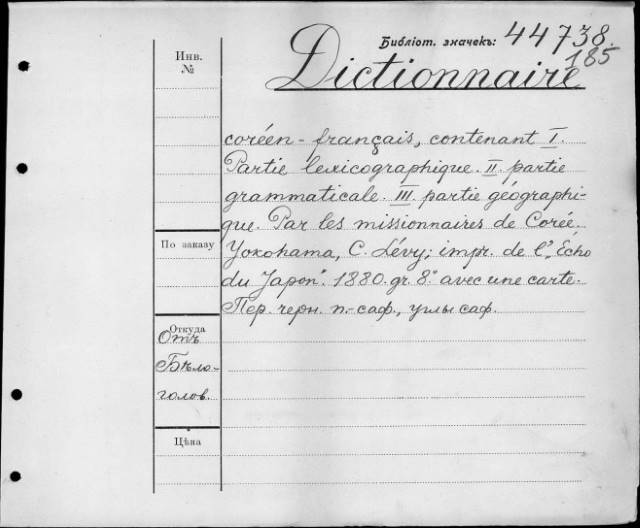 Библіот. значекъ: 44738.
185
Инв.
№
Dictionnaire
coréen-français, contenant I.
Partie lexicographique. II. partie
grammaticale. III. partie géographi-
que. Par les missionnaires de Corée.
По заказу
Yokohama, C. Lévy; impr. de l'„Echo
du Japon“. 1880. gr. 8° avec une carte.
Пер. черн. п.-саф., углы саф.
Откуда
Отъ
Бѣло-
голов.
Цѣна